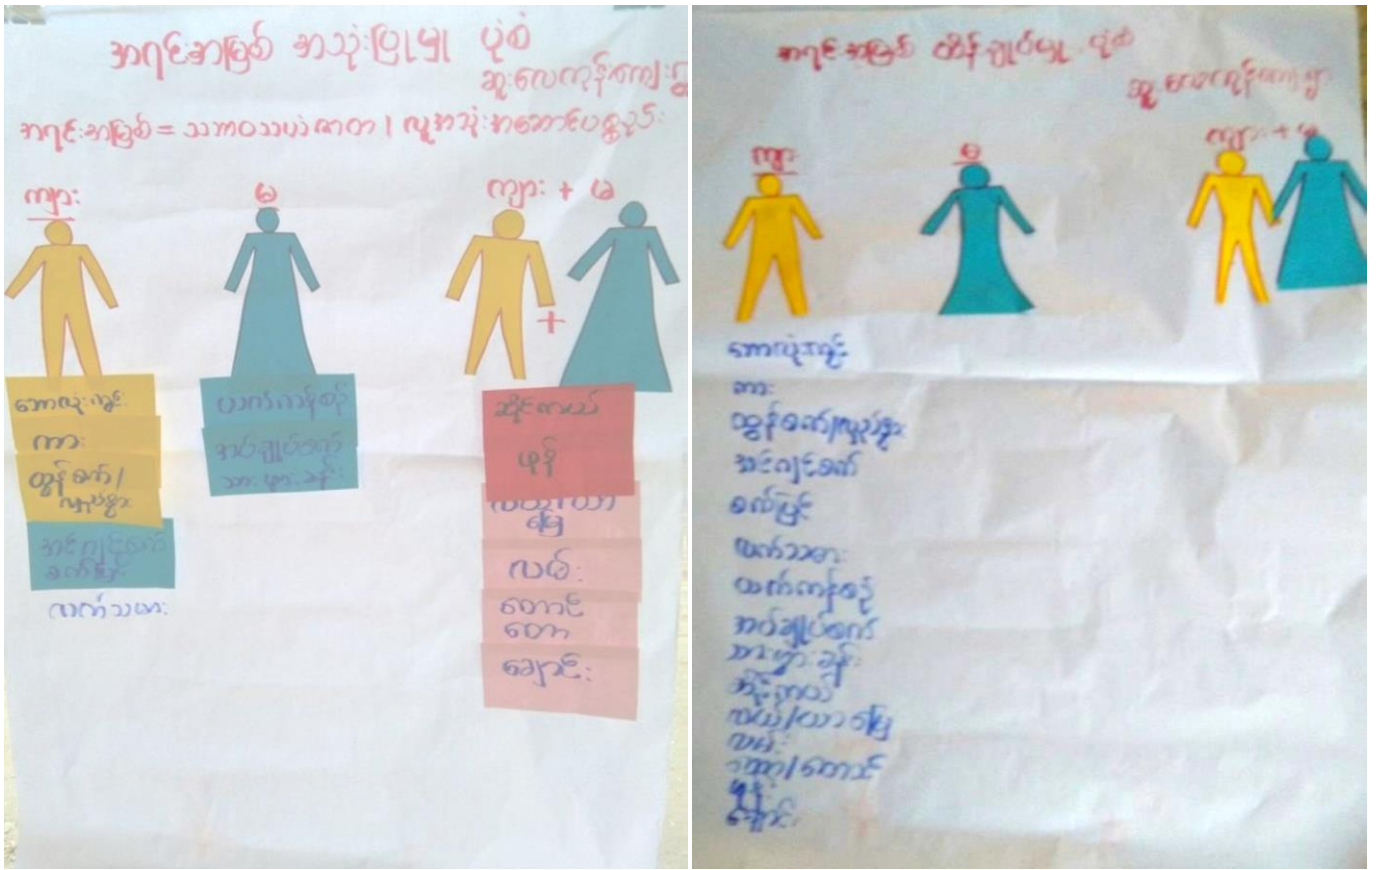 အရင်းအမြစ် အသုံးပြုမှု ပုံစံ
ဆူးလေကုန်းကျေးရွာ
အရင်းအမြစ် = သဘာဝသယံဇာတ / လူ့အသုံးအဆောင်ပစ္စည်း
ကျား
မ
ကျား + မ
+
ဘောလုံးကွင်း
ကား
ထွန်စက် /
လှည်းနွား
အင်ဂျင်စက်
စက်ပြင်
လက်သမား
ယက်ကန်းစင်
အပ်ချုပ်စက်
သားဖွားခန်း
ဆိုင်ကယ်
ဖုန်း
လယ်/ယာ
မြေ
လမ်း
တောင်
တော
ချောင်း
အရင်းအမြစ် ထိန်းချုပ်မှု ပုံစံ
ဆူးလေကုန်းကျေးရွာ
ကျား
မ
ကျား + မ
ဘောလုံးကွင်း
ကား
ထွန်စက်/လှည်းနွား
အင်ဂျင်စက်
စက်ပြင်
လက်သမား
ယက်ကန်းစင်
အပ်ချုပ်စက်
သားဖွားခန်း
ဆိုင်ကယ်
လယ်/ယာ မြေ
လမ်း
တော/တောင်
ဖုန်း
ချောင်း